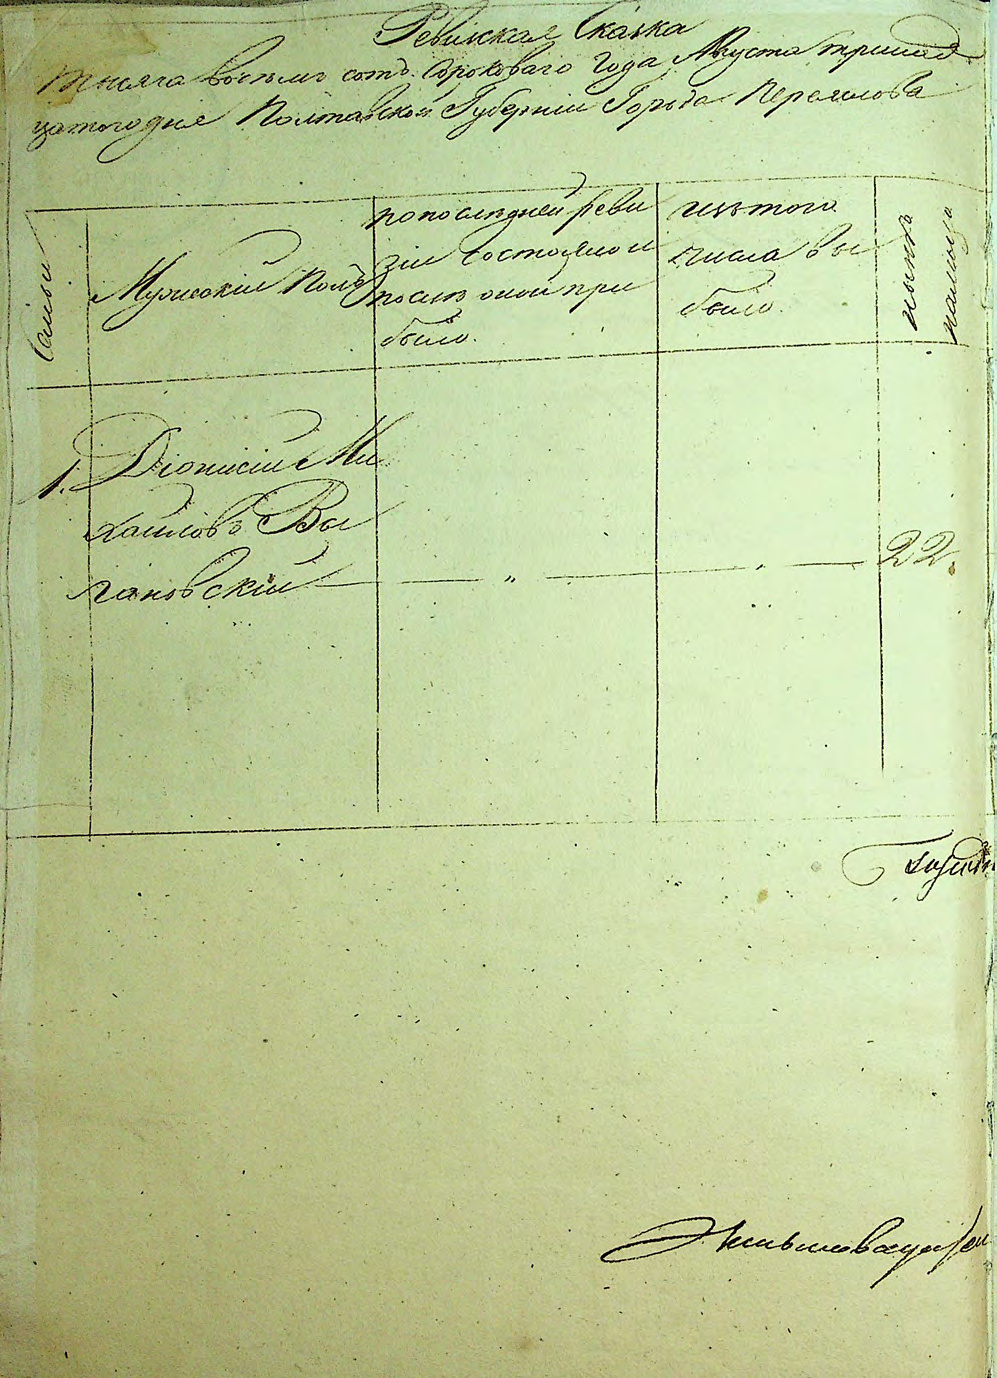 Ревизская Сказка
Тысяча восемь сотъ сороковаго года Августа тридъ
цатого дня Полтавской Губерніи Города Переяслова
Семьи
Мужескій Полъ
по последней реви
зіи состояло и
после оной при
было.
изъ того
числа вы
было.
ныне
налицо
1. Діонисій Ми
хайловъ Вы
гановскій — „ — „ — 22.